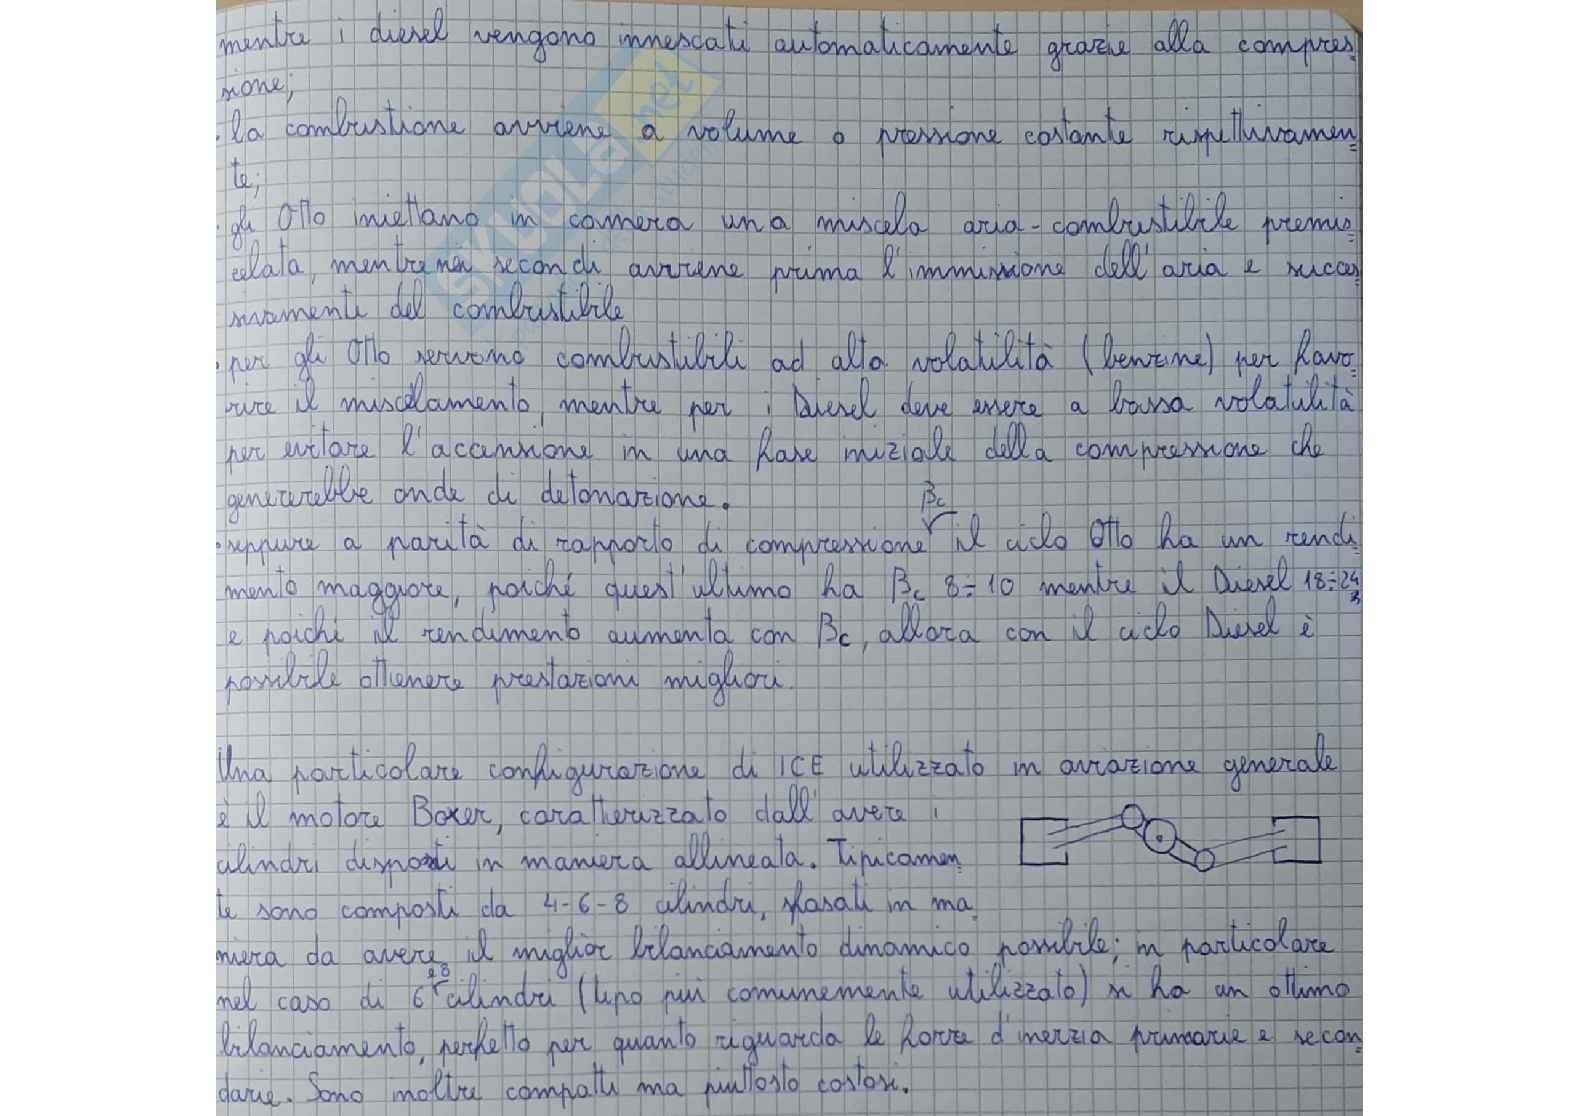 mentre i diesel vengono innescati automaticamente grazie alla compres
sione;
. la combustione avviene a volume o pressione costante rispettivamen=
te;
. gli Otto iniettano in camera una miscela aria-combustibile premis=
celata, mentre nei secondi avviene prima l'immissione dell'aria e succes
sivamente del combustibile
. per gli Otto servono combustibili ad alta volatilità (benzine) per favo=
rire il miscelamento, mentre per i Diesel deve essere a bassa volatilità
per evitare l'accensione in una fase iniziale della compressione che
genererebbe onde di detonazione.
βc
. seppure a parità di rapporto di compressione il ciclo Otto ha un rendi=
mento maggiore, poiché quest'ultimo ha βc 8÷10 mentre il Diesel 18÷24
e poiché il rendimento aumenta con βc, allora con il ciclo Diesel è
possibile ottenere prestazioni migliori.
Una particolare configurazione di ICE utilizzato in aviazione generale
è il motore Boxer, caratterizzato dall'avere i
cilindri disposti in maniera allineata. Tipicamen
te sono composti da 4-6-8 cilindri, sfasati in ma
niera da avere il miglior bilanciamento dinamico possibile; in particolare
nel caso di 6 e 8 cilindri (tipo più comunemente utilizzato) si ha un ottimo
bilanciamento, perfetto per quanto riguarda le forze d'inerzia primarie e secon
darie. Sono inoltre compatti ma piuttosto costosi.
SKUOLA.net